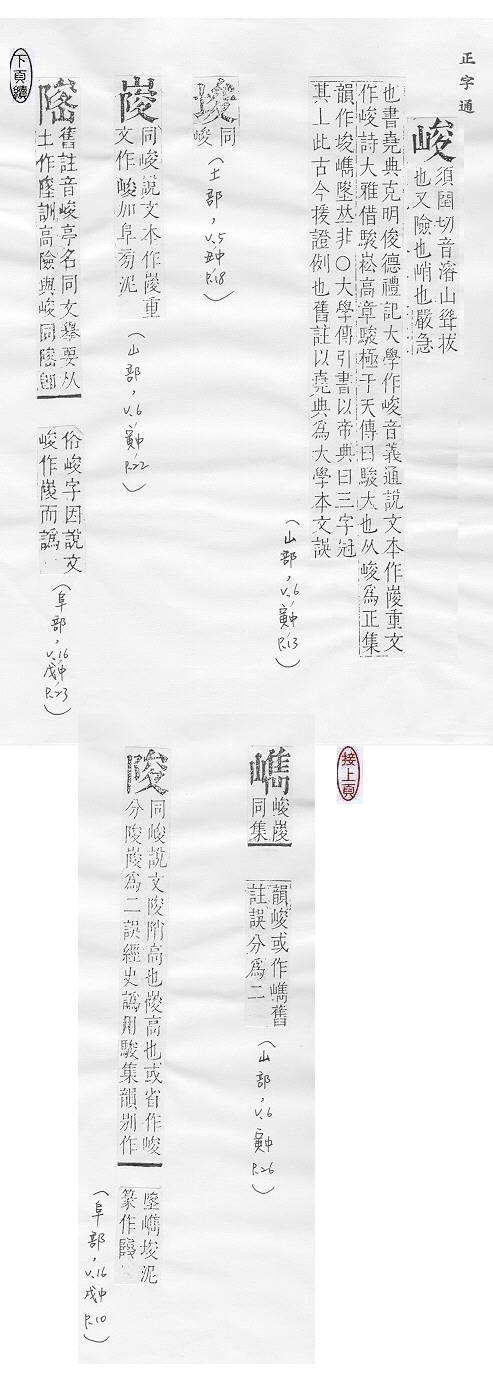 正字通
峻
須閏切音濬山聳拔
也又險也峭也嚴急
也書堯典克明俊德禮記大學作峻音義通說文本作陖重文
作峻詩大雅借駿崧高章駿極于天傳曰駿大也从峻為正集
韻作埈嶲墬𠀤非○大學傳引書以帝典曰三字冠
其上此古今援證例也舊註以堯典為大學本文誤
(山部,V.6寅中P.13)
埈
同
峻
(土部,V.5丑中P.18)
同峻說文本作陖重
文作峻加阜旁泥
(山部,V.6寅中P.22)
舊註音峻亭名同文舉要从
土作墬訓高險與峻同
俗峻字因說文
峻作陖而譌
(阜部,V.16戌中P.23)
下頁續
接上頁
峻陖
同集
韻峻或作嶲舊
註誤分為二
(山部,V.6寅中P.26)
陖
同峻說文陖陗高也陖高也或省作峻
分陖陖為二誤經史譌用駿集韻別作
埈泥
篆作
(阜部,V.16戌中P.10)